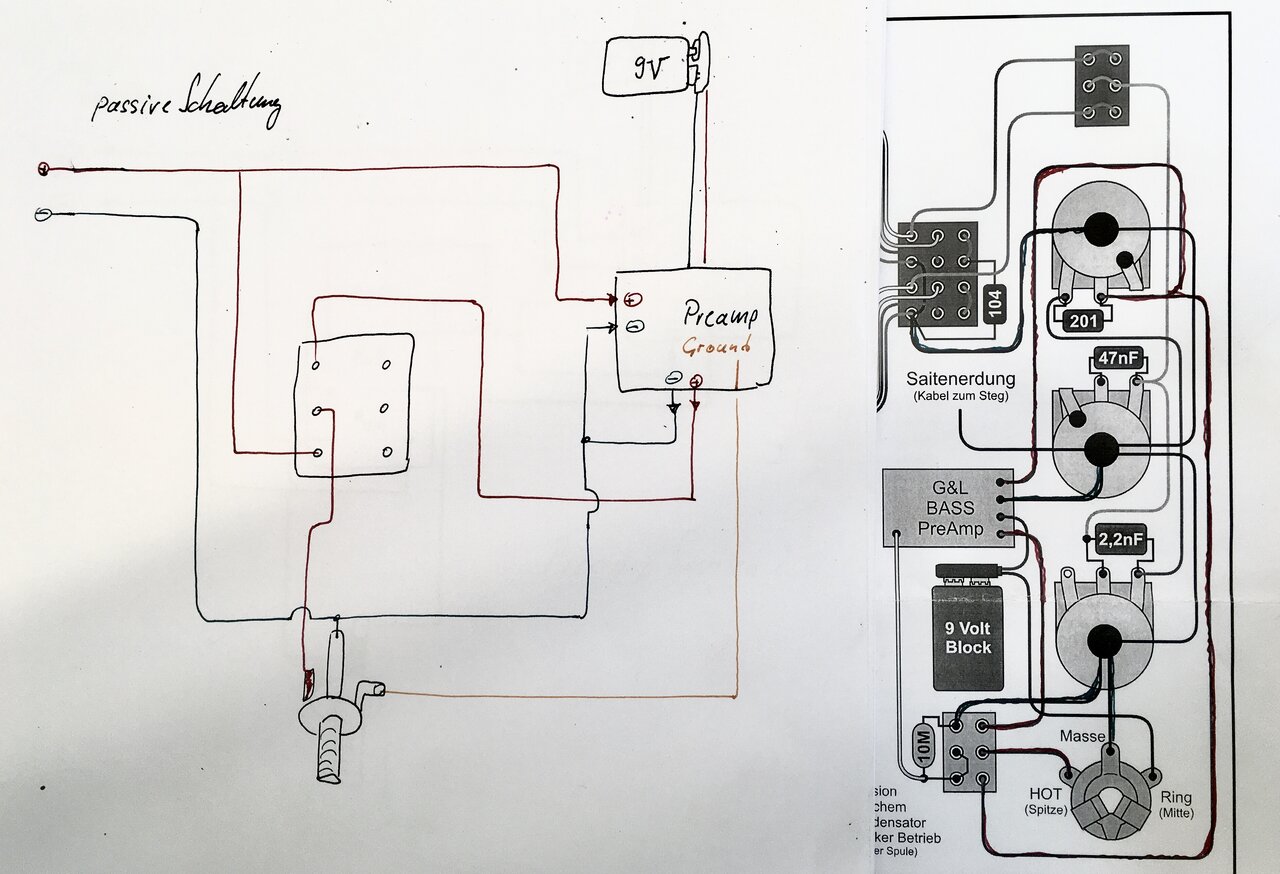 passive Schaltung
9V
+
-
+
-
Preamp
Ground
-
+
104
201
47nF
Saitenerdung
(Kabel zum Steg)
G&L
BASS
PreAmp
2,2nF
9 Volt
Block
10M
Masse
HOT
(Spitze)
Ring
(Mitte)
sion
chem
densator
ker Betrieb
er Spule)